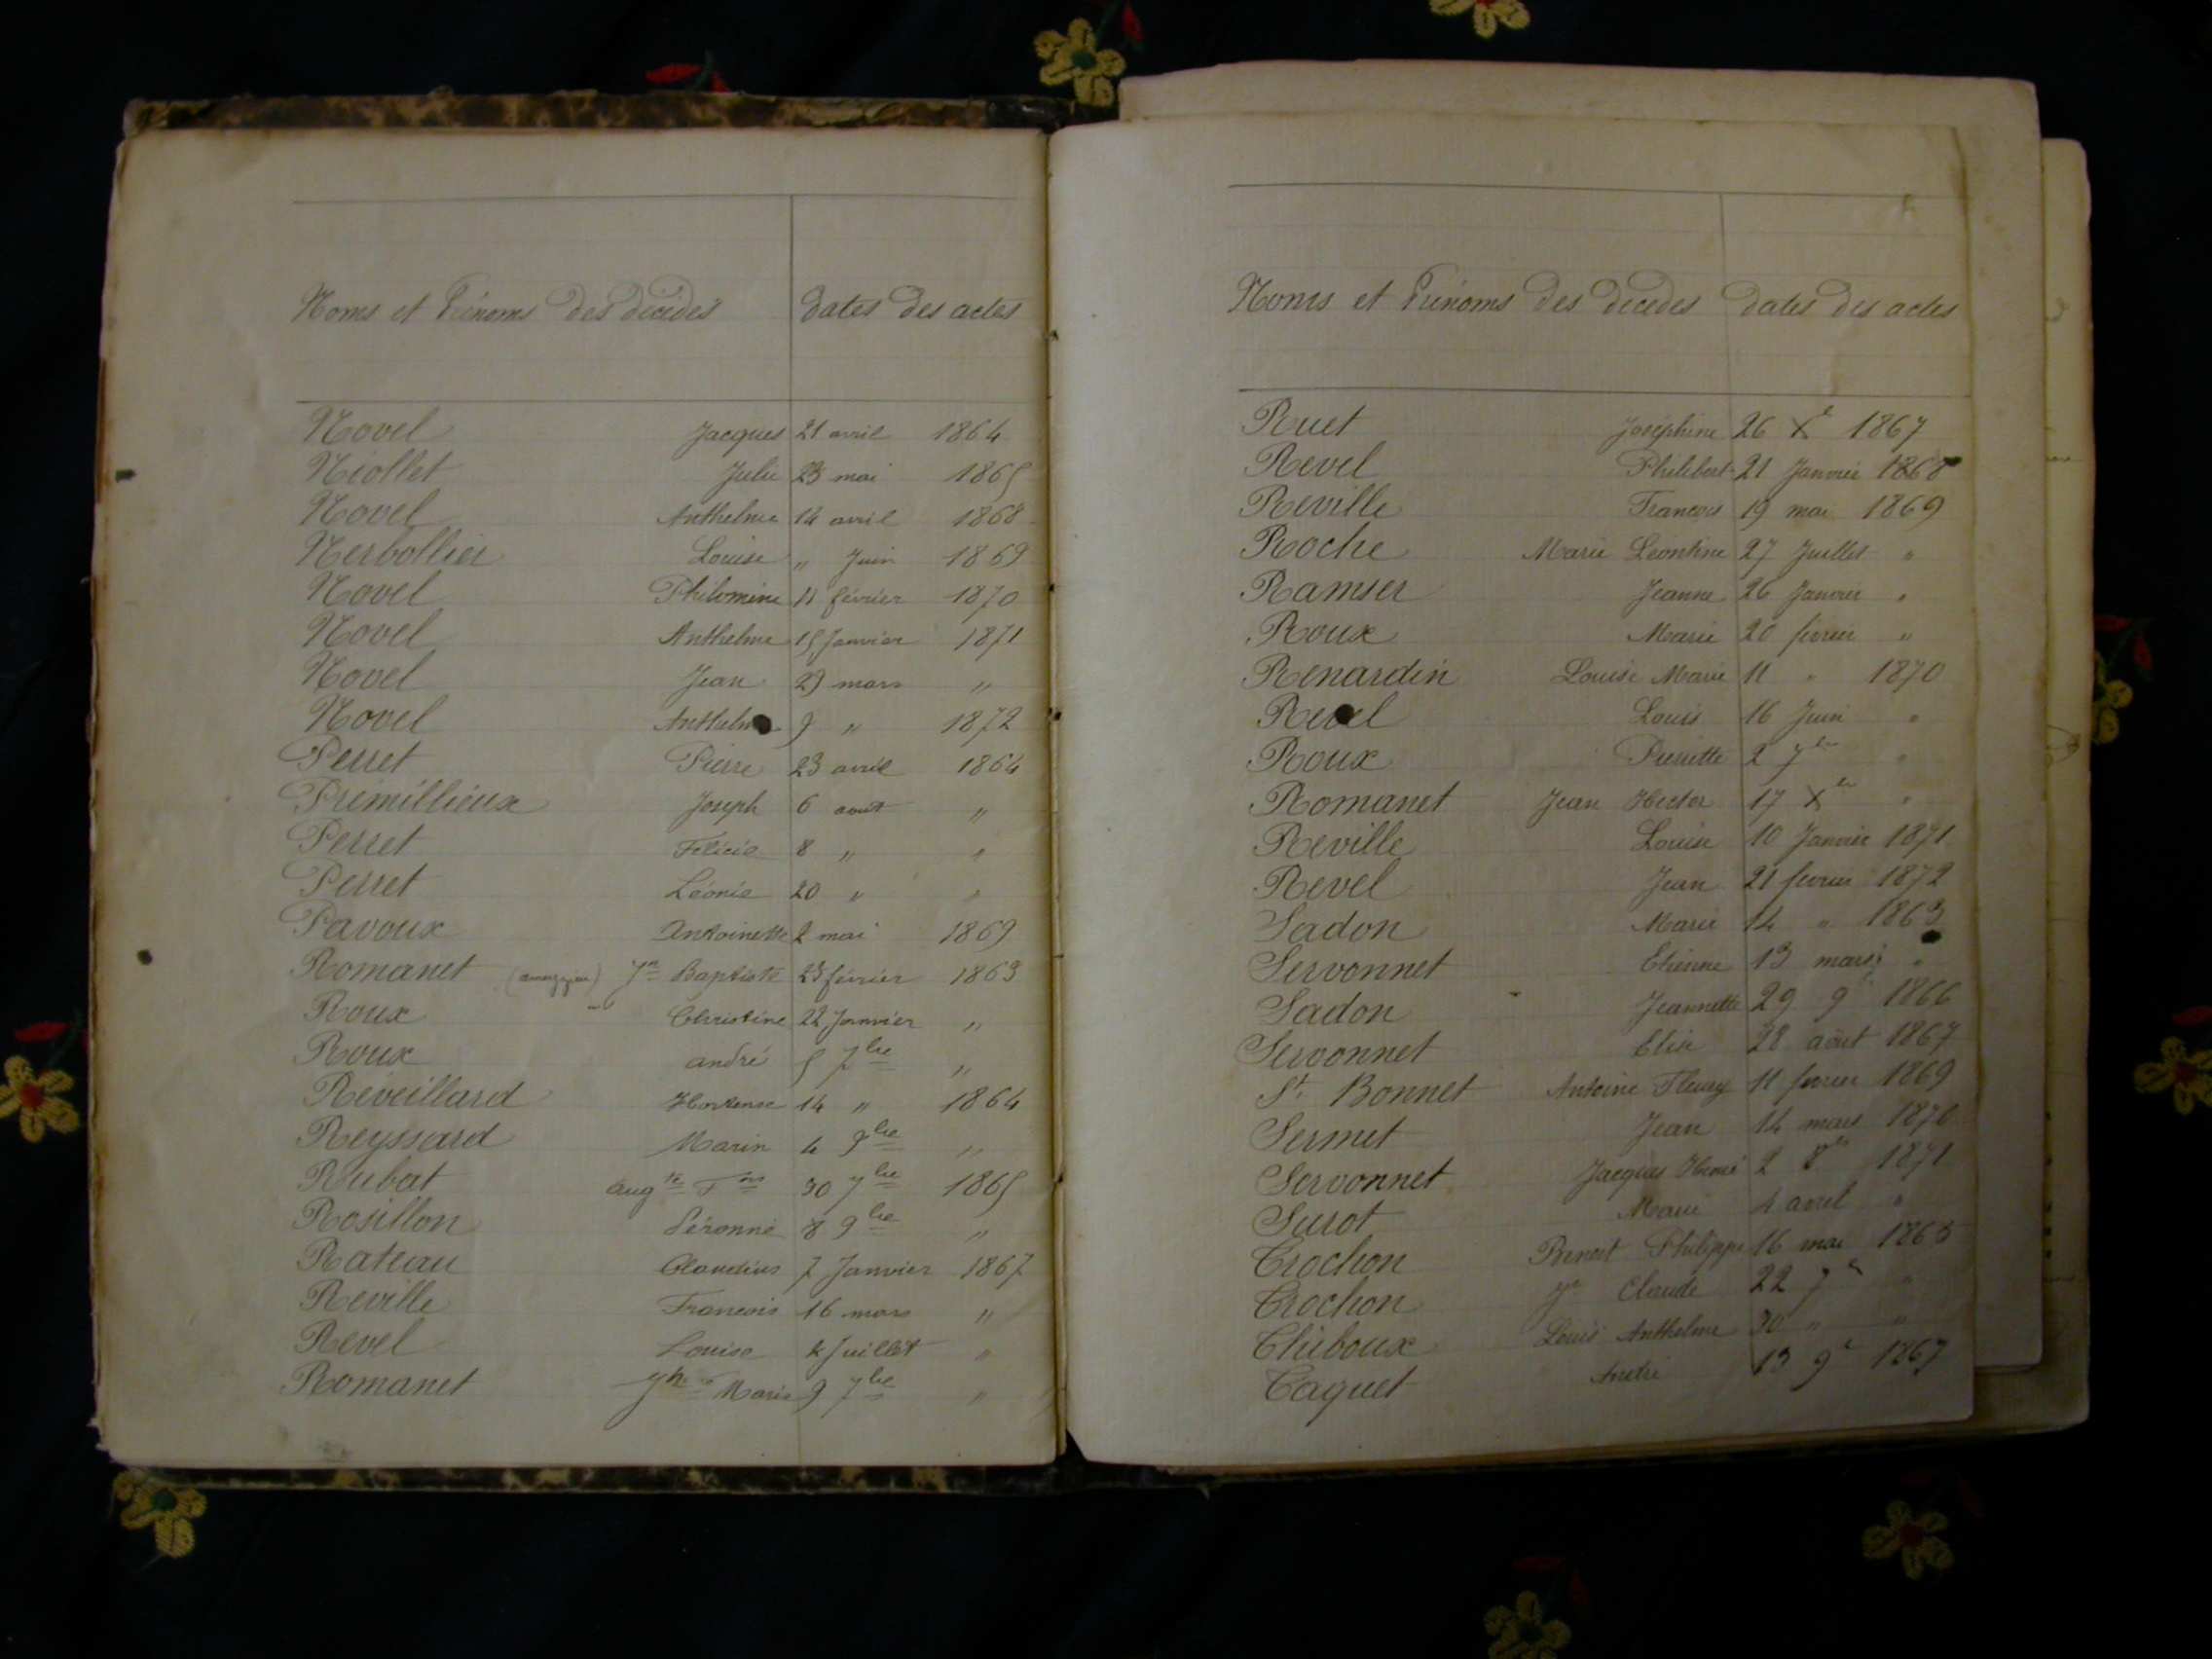 Noms et Prénoms des décédés dates des actes
Novel Jacques 21 avril 1864
Niollet Julie 23 mai 1865
Novel Anthelme 14 avril 1868
Nerbollier Louise " Juin 1869
Novel Philomine 11 février 1870
Novel Anthelme 15 Janvier 1871
Novel Jean 29 mars "
Novel Anthelme 9 " 1872
Perret Pierre 23 avril 1864
Prémillieux Joseph 6 aout "
Perret Félicie 8 " "
Perret Léonie 20 " "
Pavoux Antoinette 2 mai 1869
Romanet Jn Baptiste 23 février 1863
Roux Christine 22 Janvier "
Roux andré 5 7bre "
Réveillard Hortense 14 " 1864
Reyssard Marin 4 9bre "
Rubat augte Fois 30 7bre 1865
Rosillon Péronne 8 9bre "
Rateau Claudius 7 Janvier 1867
Reville Francois 16 mars "
Revel Louise 4 Juillet "
Romanet Jh Marie 9 7bre "
Noms et Prénoms des décédés dates des actes
Ruet Joséphine 26 Xe 1867
Revel Philibert 21 Janvier 1868
Reville Francois 19 mai 1869
Roche Marie Léontine 27 Juillet "
Ramser Jeanne 26 Janvier "
Roux Marie 20 février "
Renardin Louise Marie 11 " 1870
Revel Louis 16 Juin "
Roux Pierrette 2 7bre "
Romanet Jean Hector 17 Xbre "
Reville Louise 10 Janvier 1871
Revel Jean 21 fevrier 1872
Sadon Marie 14 " 1863
Servonnet Etienne 13 mars "
Sadon Jeannette 29 9e 1866
Servonnet Elise 28 août 1867
St Bonnet Antoine Fleury 11 fevrier 1869
Sermet Jean 14 mars 1870
Servonnet Jacques 2 8bre 1871
Surot Marie 4 avril "
Crochon Benoit Philippe 16 mai 1865
Crochon Jn Claude 22 7e "
Chiboux Louis Anthelme 30 " "
Caquet André 13 9e 1867